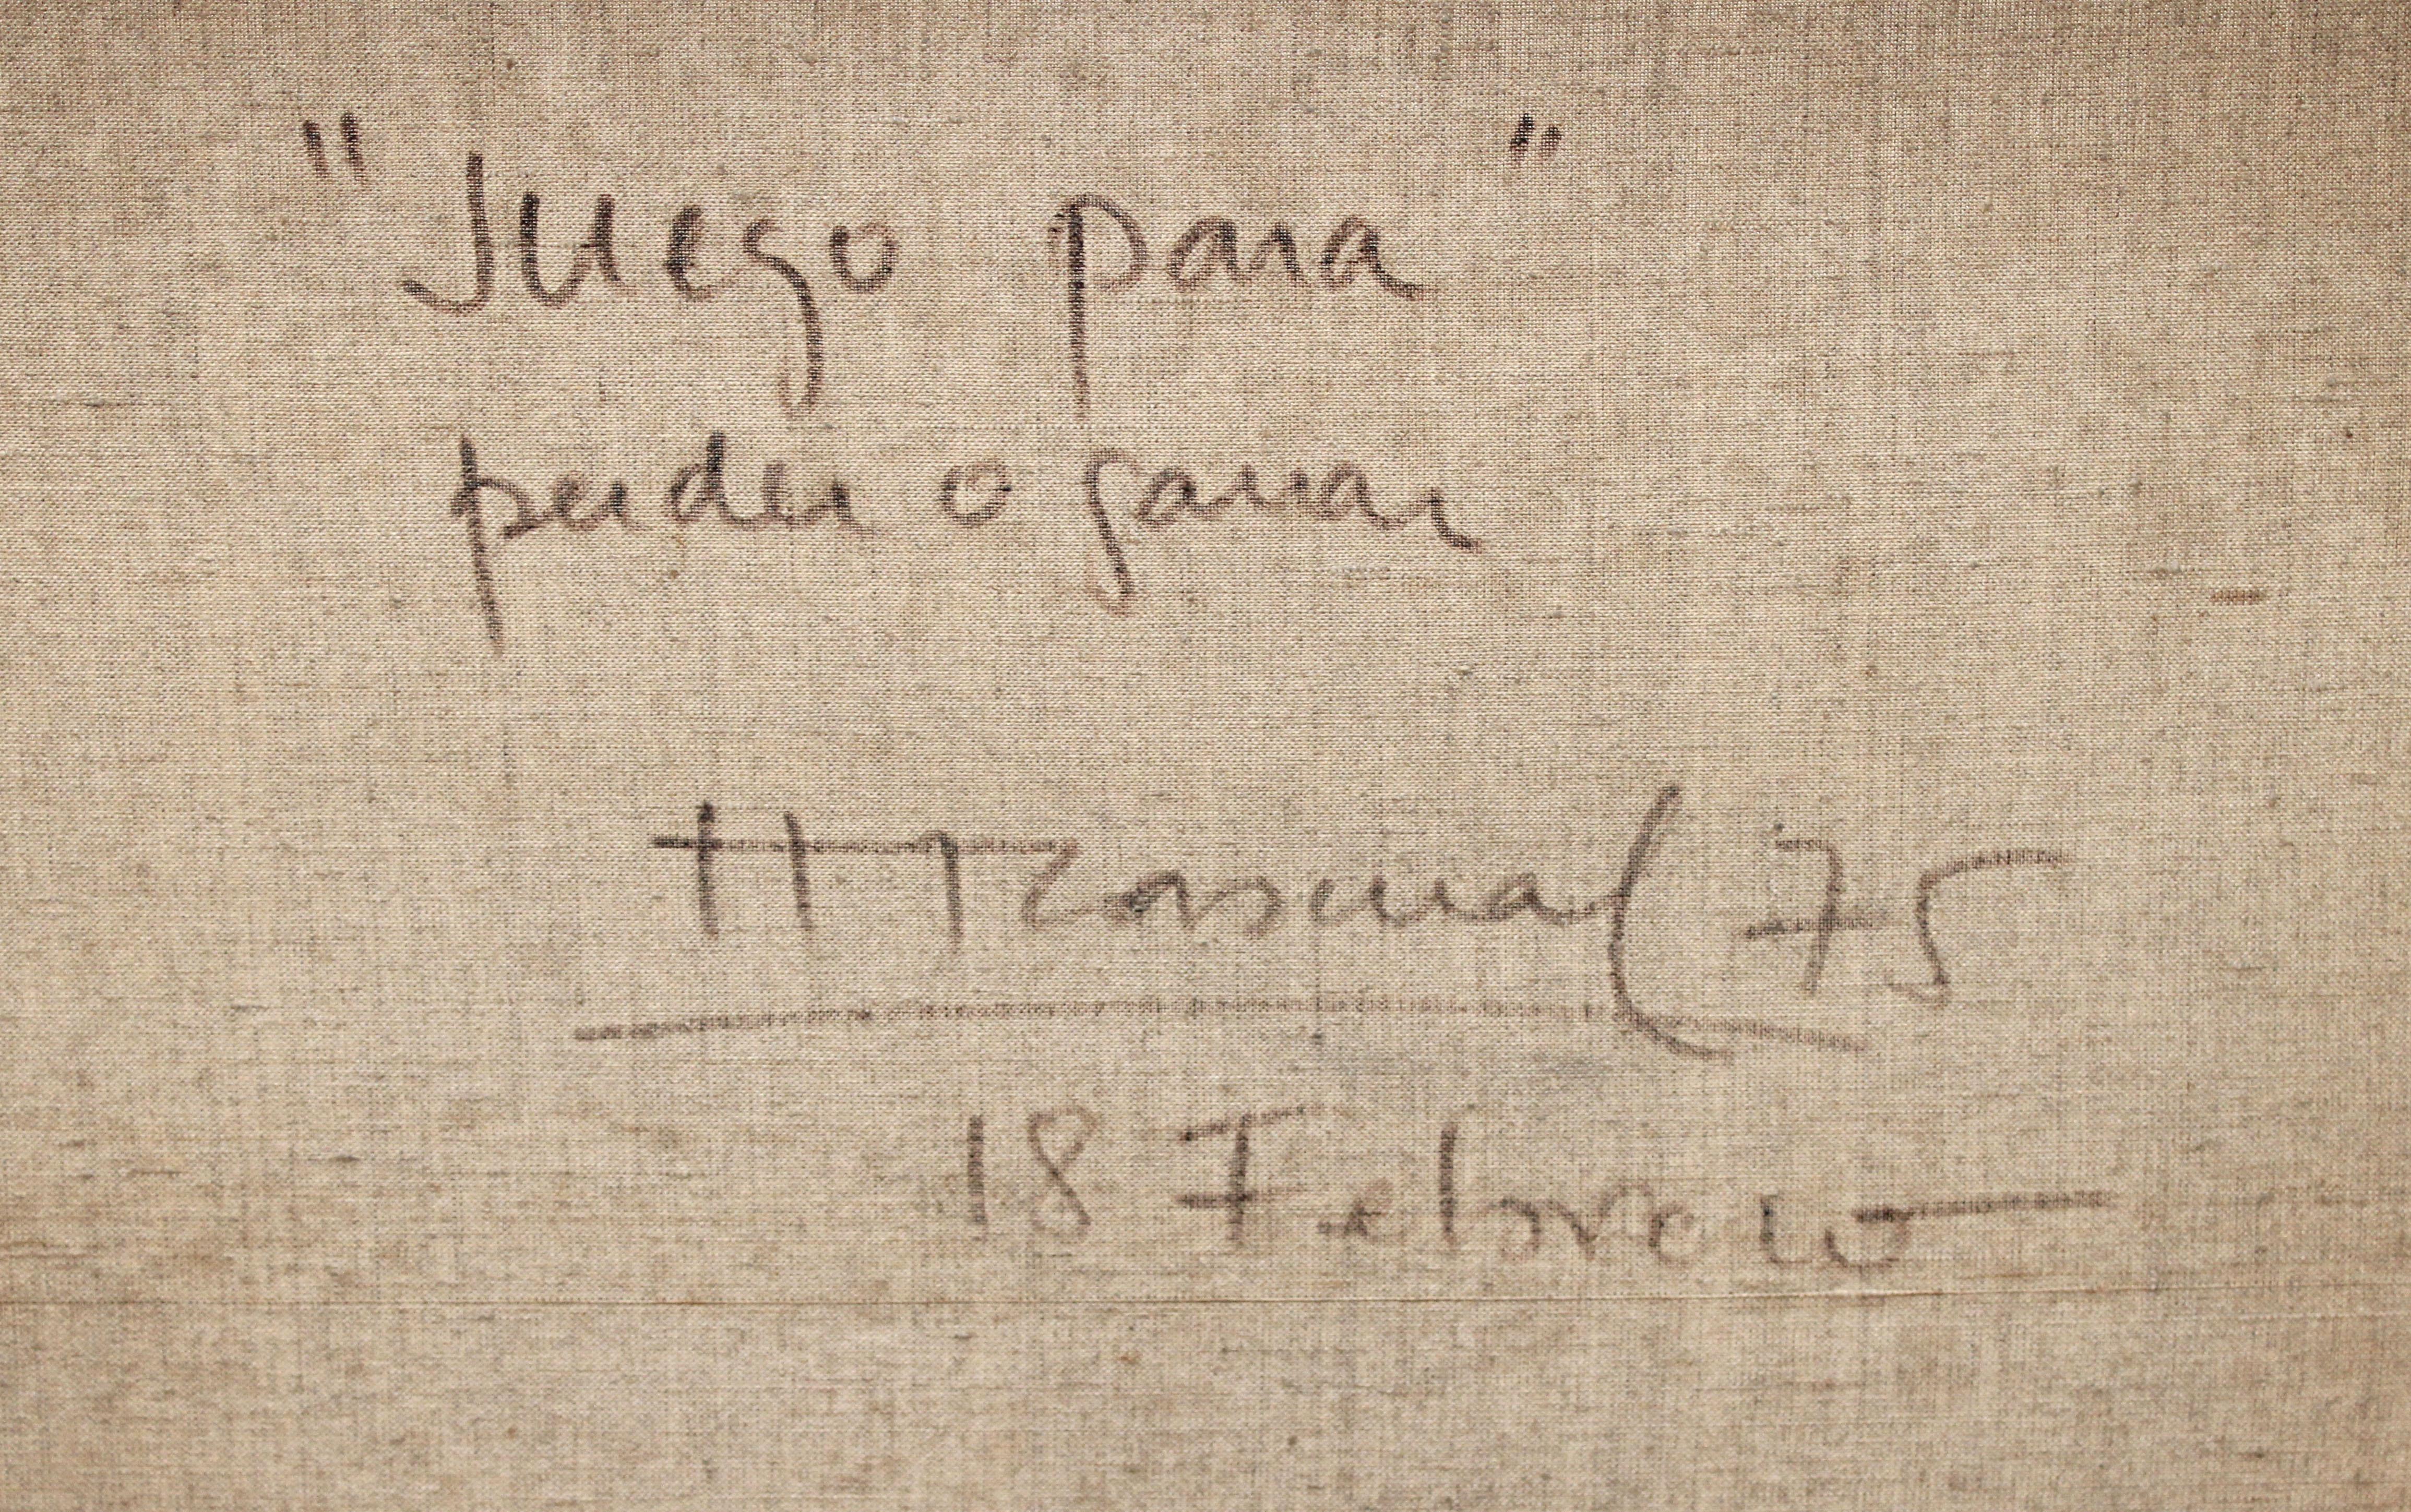 "Juego para"
perder o ganar
H Pascual 75
18 Febrero